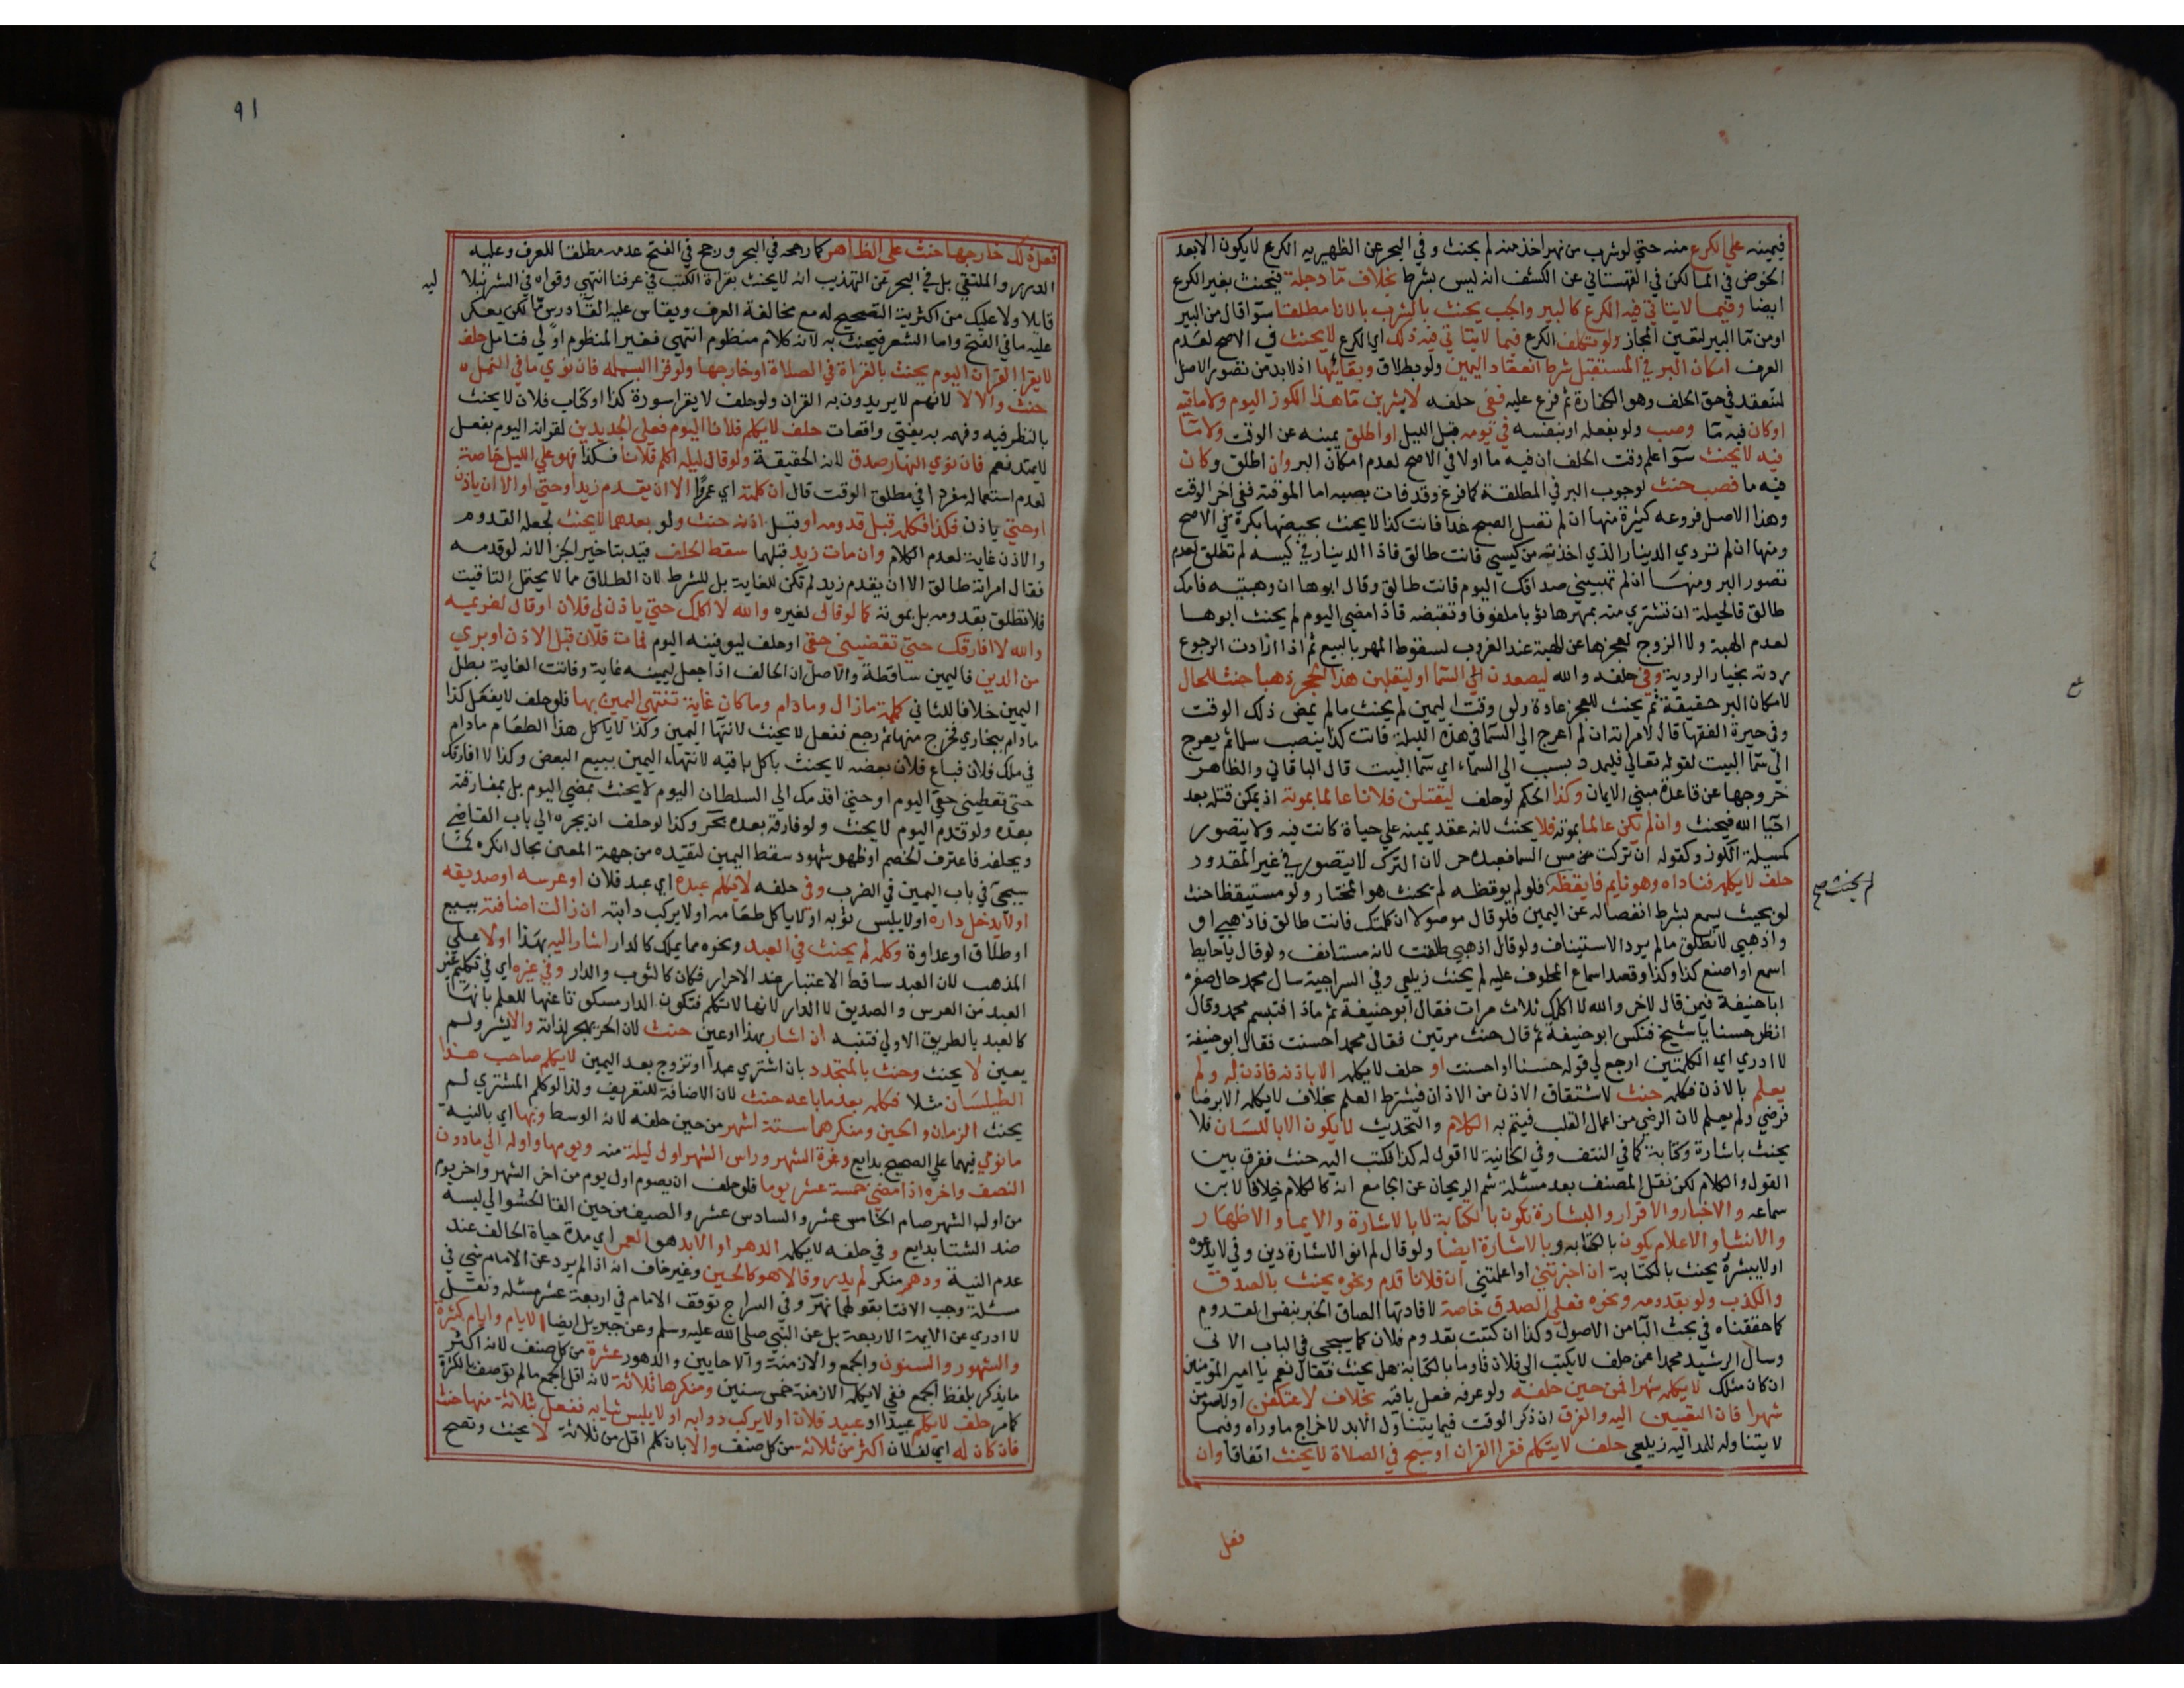 فيمينه علي الكرع منه حتي لو شرب من نهر اخذ منه لم يحنث وفي البحر عن الظهيريه الكرع لا يكون الا بعد
الخوض في الما لكن في القهستاني عن الكشف انه ليس بشرط بخلاف مآ دجلة فيحنث بغير الكرع
ايضا وفيما لا يتاتي فيه الكرع كالبير والجب يحنث بالشرب بالانا مطلقا سوآ قال من البير
او من مآ البير لتعين المجاز ولو تكلف الكرع فيما لا يتاتي فيه ذلك اي الكرع لا يحنث في الاصح لعدم
العرف امكان البر في المستقبل شرط انعقاد اليمين ولو بطلاق وبقائها اذ لابد من تصور الاصل
لتنعقد في حق الخلف وهو الكفارة ثم فرع عليه ففي حلفه لا يشربن مآ هذا الكوز اليوم ولا ما فيه
او كان فيه مآ وصب ولو بفعله او بنفسه في يومه قبل الليل او اطلق يمينه عن الوقت ولا مآ
فيه لا يحنث سوآ علم وقت الحلف ان فيه ما اولا في الاصح لعدم امكان البر وان اطلق وكان
فيه ما فصب حنث لوجوب البر في المطلقة كما فرغ وقد فات بصبه اما الموقتة ففي اخر الوقت
وهذا الاصل فروعه كثيرة منها ان لم تصل الصبح غدا فانت كذا لا يحنث بحيضها بكرة في الاصح
ومنها ان لم تردي الدينار الذي اخذتيه من كيسي فانت طالق فاذا الدينار في كيسه لم تطلق لعدم
تصور البر ومنها ان لم تهبيني صداقك اليوم فانت طالق وقال ابوها ان وهبتيه فامك
طالق فالحيلة ان تشتري منه بمهرها ثوبا ملفوفا وتقبضه فاذا مضي اليوم لم يحنث ابوها
لعدم الهبة ولا الزوج لعجزها عن الهبة عند الغروب لسقوط المهر بالبيع ثم اذا ارادت الرجوع
ردته بخيار الروية وفي حلفه والله ليصعدن الي السما او ليقلبن هذا الحجر ذهبا حنث للحال
لامكان البر حقيقة ثم يحنث للعجز عادة ولو وقت اليمين لم يحنث مالم يمض ذلك الوقت
وفي حيرة الفقها قال لامراته ان لم اعرج الي السما في هذه الليلة فانت كذا ينصب سلما ثم يعرج
الي سما البيت لقوله تعالي فليمدد بسبب الي السماء اي سما البيت قال الباقاني والظاهر
خروجها عن قاعدة مبني الايمان وكذا الحكم لو حلف ليقتلن فلانا عالما بموته اذ يمكن قتله بعد
احيا الله فيحنث وان لم يكن عالما بموته فلا يحنث لانه عقد يمينه علي حياة كانت فيه ولا يتصور
كمسيلة الكوز وكقوله ان تركت مس السما فعبده حر لان الترك لا يتصور في غير المقدور
حلف لا يكلمه فناداه وهو نايم فايقظه فلو لم يوقظه لم يحنث هو المختار ولو مستيقظا حنث
لو بحيث يسمع بشرط انفصاله عن اليمين فلو قال موصولا ان كلمتك فانت طالق فاذهبي او
واذهبي لا تطلق مالم يرد الاستيناف ولو قال اذهبي طلقت لانه مستانف ولو قال يا حايط
اسمع او اصنع كذا وكذا وقصد اسماع المحلوف عليه لم يحنث زيلعي وفي السراجية سال محمد حال صغره
ابا حنيفة فيمن قال لاخر والله لا اكلمك ثلاث مرات فقال ابو حنيفة ثم ماذا فتبسم محمد وقال
انظر حسنا يا شيخ فنكس ابو حنيفة ثم قال حنث مرتين فقال محمد احسنت فقال ابو حنيفة
لا ادري اي الكلمتين ارجع لي قوله حسنا او احسنت او حلف لا يكلمه الا باذنه فاذن له ولم
يعلم بالاذن فكلمه حنث لاشتقاق الاذن من الاذان فيشترط العلم بخلاف لا يكلمه الا برضا
فرضي ولم يعلم لان الرضي من اعمال القلب فيتم به الكلام والتحديث لا يكون الا باللسان فلا
يحنث باشارة وكتابة كما في النتف وفي الخانية لا اقول له كذا فكتب اليه حنث ففرق بين
القول والكلام لكن نقل المصنف بعد مسئلة شم الريحان عن الجامع انه كالكلام خلافا لابن
سماعه والاخبار والاقرار والبشارة تكون بالكتابة لا بالاشارة والايما والاظهار
والانشا والاعلام يكون بالكتابه وبالاشارة ايضا ولو قال لم انو الاشارة دين وفي لا يدعوه
او لا يبشره يحنث بالكتابة ان اخبرتني او اعلمتني ان فلانا قدم ونحوه يحنث بالصدق
والكذب ولو بقدومه ونحوه فعلي الصدق خاصة لافادتها الصاق الخبر بنفس القدوم
كما حققناه في بحث البا من الاصول وكذا ان كتبت بقدوم فلان كما سيجي في الباب الاتي
وسال الرشيد محمدا عمن حلف لا يكتب الي فلان فاوما بالكتابة هل يحنث فقال نعم يا امير المومنين
ان كان مثلك لا يكلمه شهرا فمن حين حلفه ولو عرفه فعل باقيه بخلاف لاعتكفن او لاصومن
شهرا فان التعيين اليه والفرق ان ذكر الوقت فيما يتناول الابد لاخراج ما وراه وفيما
لا يتناوله للمد اليه زيلعي حلف لا يتكلم فقرا القران او سبح في الصلاة لا يحنث اتفاقا وان
فعل
لم يحنث صح
٩١
فعل ذلك خارجها حنث علي الظاهر كما رجحه في البحر ورجح في الفتح عدمه مطلقا للعرف وعليه
الدرر والملتقي بل في البحر عن التهذيب انه لا يحنث بقراة الكتب في عرفنا انتهي وقواه في الشرنبلا
ليه
قايلا ولا عليك من اكثرية التصحيح له مع مخالفة العرف ويقاس عليه القا درس ما لكن يعكر
عليه ما في الفتح واما الشعر فيحنث به لانه كلام منظوم انتهي فغير المنظوم اولي فتامل حلف
لا يقرا القران اليوم يحنث بالقراة في الصلاة او خارجها ولو قرا البسمله فان نوي ما في النمل
حنث والا لا لانهم لا يريدون به القران ولو حلف لا يقرا سورة كذا او كتاب فلان لا يحنث
بالنظر فيه وفهمه به يفتي واقعات حلف لا يكلم فلانا اليوم فعلي الجديدين لقرانه اليوم بفعل
لا يمتد فعم فان نوي النهار صدق لانه الحقيقة ولو قال ليلة اكلم فلانا فكذا فهو علي الليل خاصة
لعدم استعماله مفردا في مطلق الوقت قال ان كلمته اي عمروا الا ان يقدم زيد او حتي او الا ان ياذن
او حتي ياذن فكذا فكلمه قبل قدومه او قبل اذنه حنث ولو بعدهما لا يحنث لجعله القدوم
والاذن غاية لعدم الكلام وان مات زيد قبلهما سقط الحلف قيد بتاخير الجزا لانه لو قدمه
فقال امراته طالق الا ان يقدم زيد لم تكن للغاية بل للشرط لان الطلاق مما لا يحتمل التاقيت
فلا تطلق بقدومه بل بموته كما لو قال لغيره والله لا اكلمك حتي ياذن لي فلان او قال لغريمه
والله لا افارقك حتي تقضيني حقي او حلف ليوفينه اليوم فمات فلان قبل الاذن او بري
من الدين فاليمين ساقطة والاصل ان الحالف اذا جعل ليمينه غاية وفاتت الغاية بطل
اليمين خلافا للثاني كلمة مازال ومادام وما كان غاية تنتهي اليمين بها فلو حلف لا يفعل كذا
مادام ببخاري فخرج منها ثم رجع ففعل لا يحنث لانتها اليمين وكذا لا ياكل هذا الطعام مادام
في ملك فلان فباع فلان بعضه لا يحنث باكل باقيه لانتهاء اليمين ببيع البعض وكذا لا افارقك
حتي تعطيني حقي اليوم او حتي اقدمك الي السلطان اليوم لا يحنث بمضي اليوم بل بمفارقته
بعده ولو قدم اليوم لا يحنث ولو فارقه بعده بحر وكذا لو حلف ان يجره الي باب القاضي
ويحلفه فاعترف الخصم او ظهر شهود سقط اليمين لتقيده من جهة المعني بحال انكره كما
سيجي في باب اليمين في الضرب وفي حلفه لا يكلم عبده اي عبد فلان او عرسه او صديقه
او لا يدخل داره او لا يلبس ثوبه او لا ياكل طعامه او لا يركب دابته ان زالت اضافته ببيع
او طلاق او عداوة وكلمه لم يحنث في العبد ونحوه مما يملك كالدار اشار اليه بهذا اولا علي
المذهب لان العبد ساقط الاعتبار عند الاحرار فكان كالثوب والدار وفي غيره اي في تكليم غير
العبد من العرس والصديق لا الدار لانها لا تكلم فتكون الدار مسكوتا عنها للعلم بانها
كالعبد بالطريق الاولي فتنبه ان اشار بهذا او عين حنث لان الحر يهجر لذاته والا يشر ولم
يعين لا يحنث وحنث بالمتجدد بان اشتري عبدا او تزوج بعد اليمين لا يكلم صاحب هذا
الطيلسان مثلا فكلمه بعد ما باعه حنث لان الاضافة للتعريف ولذا لو كلم المشتري لم
يحنث الزمان والحين ومنكرهما ستة اشهر من حين حلفه لانه الوسط وبها اي بالنية
ما نوي فيهما علي الصحيح بدايع وغرة الشهر وراس الشهر اول ليلة منه ويومها واوله الي مادون
النصف واخره اذا مضي خمسة عشر يوما فلو حلف ان يصوم اول يوم من اخر الشهر واخر يوم
من اول الشهر صام الخامس عشر والسادس عشر والصيف من حين القا الحشو الي لبسه
ضد الشتا بدايع وفي حلفه لا يكلمه الدهر او الابد هو العمر اي مدة حياة الحالف عند
عدم النية ودهر منكر لم يدر وقالا هو كالحين وغير خاف انه اذا لم يرد عن الامام شي في
مسئلة وجب الافتا بقولهما نهر وفي السراج توقف الامام في اربعة عشر مسئله ونقل
لا ادري عن الايمة الاربعة بل عن النبي صلي الله عليه وسلم وعن جبريل ايضا الايام وايام كثيرة
والشهور والسنون والجمع والازمنة والاحايين والدهور عشرة من كل صنف لانه اكثر
ما يذكر بلفظ الجمع ففي لا يكلمه الازمنة خمس سنين ومنكرها ثلاثة لانه اقل الجمع مالم توصف بالكثرة
كما مر حلف لا يكلم عبيدا او عبيد فلان او لا يركب دوابه او لا يلبس ثيابه ففعل ثلاثة منها حنث
فان كان له اي لفلان اكثر من ثلاثه من كل صنف والا بان كلم اقل من ثلاثة لا يحنث وتصح